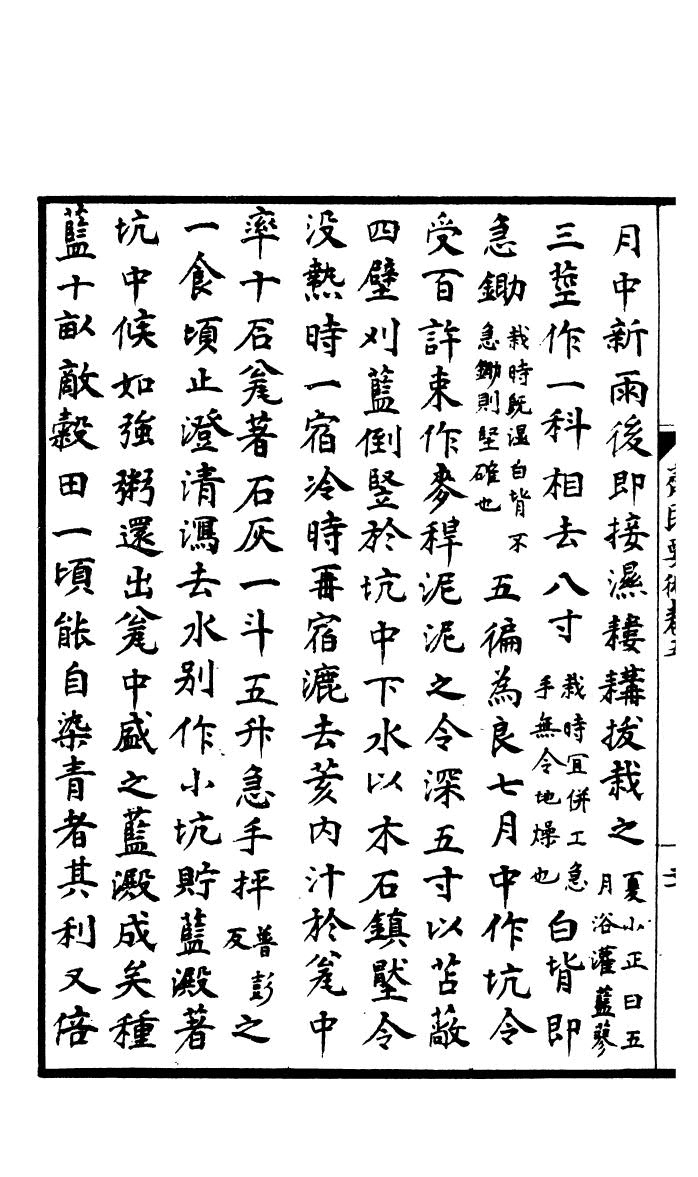 齊民要術卷五
月中新雨後即接濕耬耩拔栽之夏小正曰五月浴灌藍蓼
三莖作一科相去八寸栽時宜併工急手無令地燥也白背即
急鋤栽時既湿白背不急鋤則堅確也五徧為良七月中作坑令
受百許束作麥稈泥泥之令深五寸以苫蔽
四壁刈藍倒竪於坑中下水以木石鎮壓令
没熱時一宿冷時再宿漉去荄内汁於瓮中
率十石瓮著石灰一斗五升急手抨普彭反之
一食頃止澄清瀉去水别作小坑貯藍澱著
坑中候如強粥還出瓮中盛之藍澱成矣種
藍十畝敵穀田一頃能自染青者其利又倍